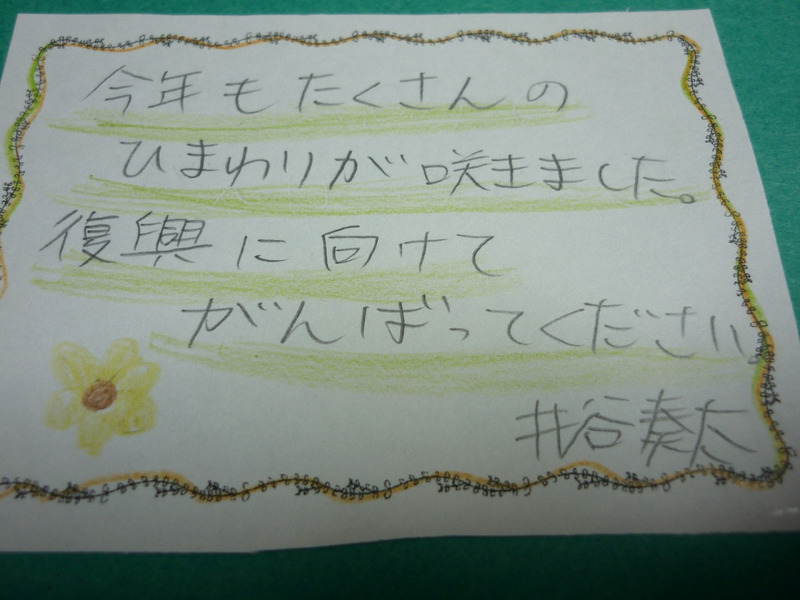 今年もたくさんの
ひまわりが咲きました。
復興に向けて
がんばってください。
井谷奏太